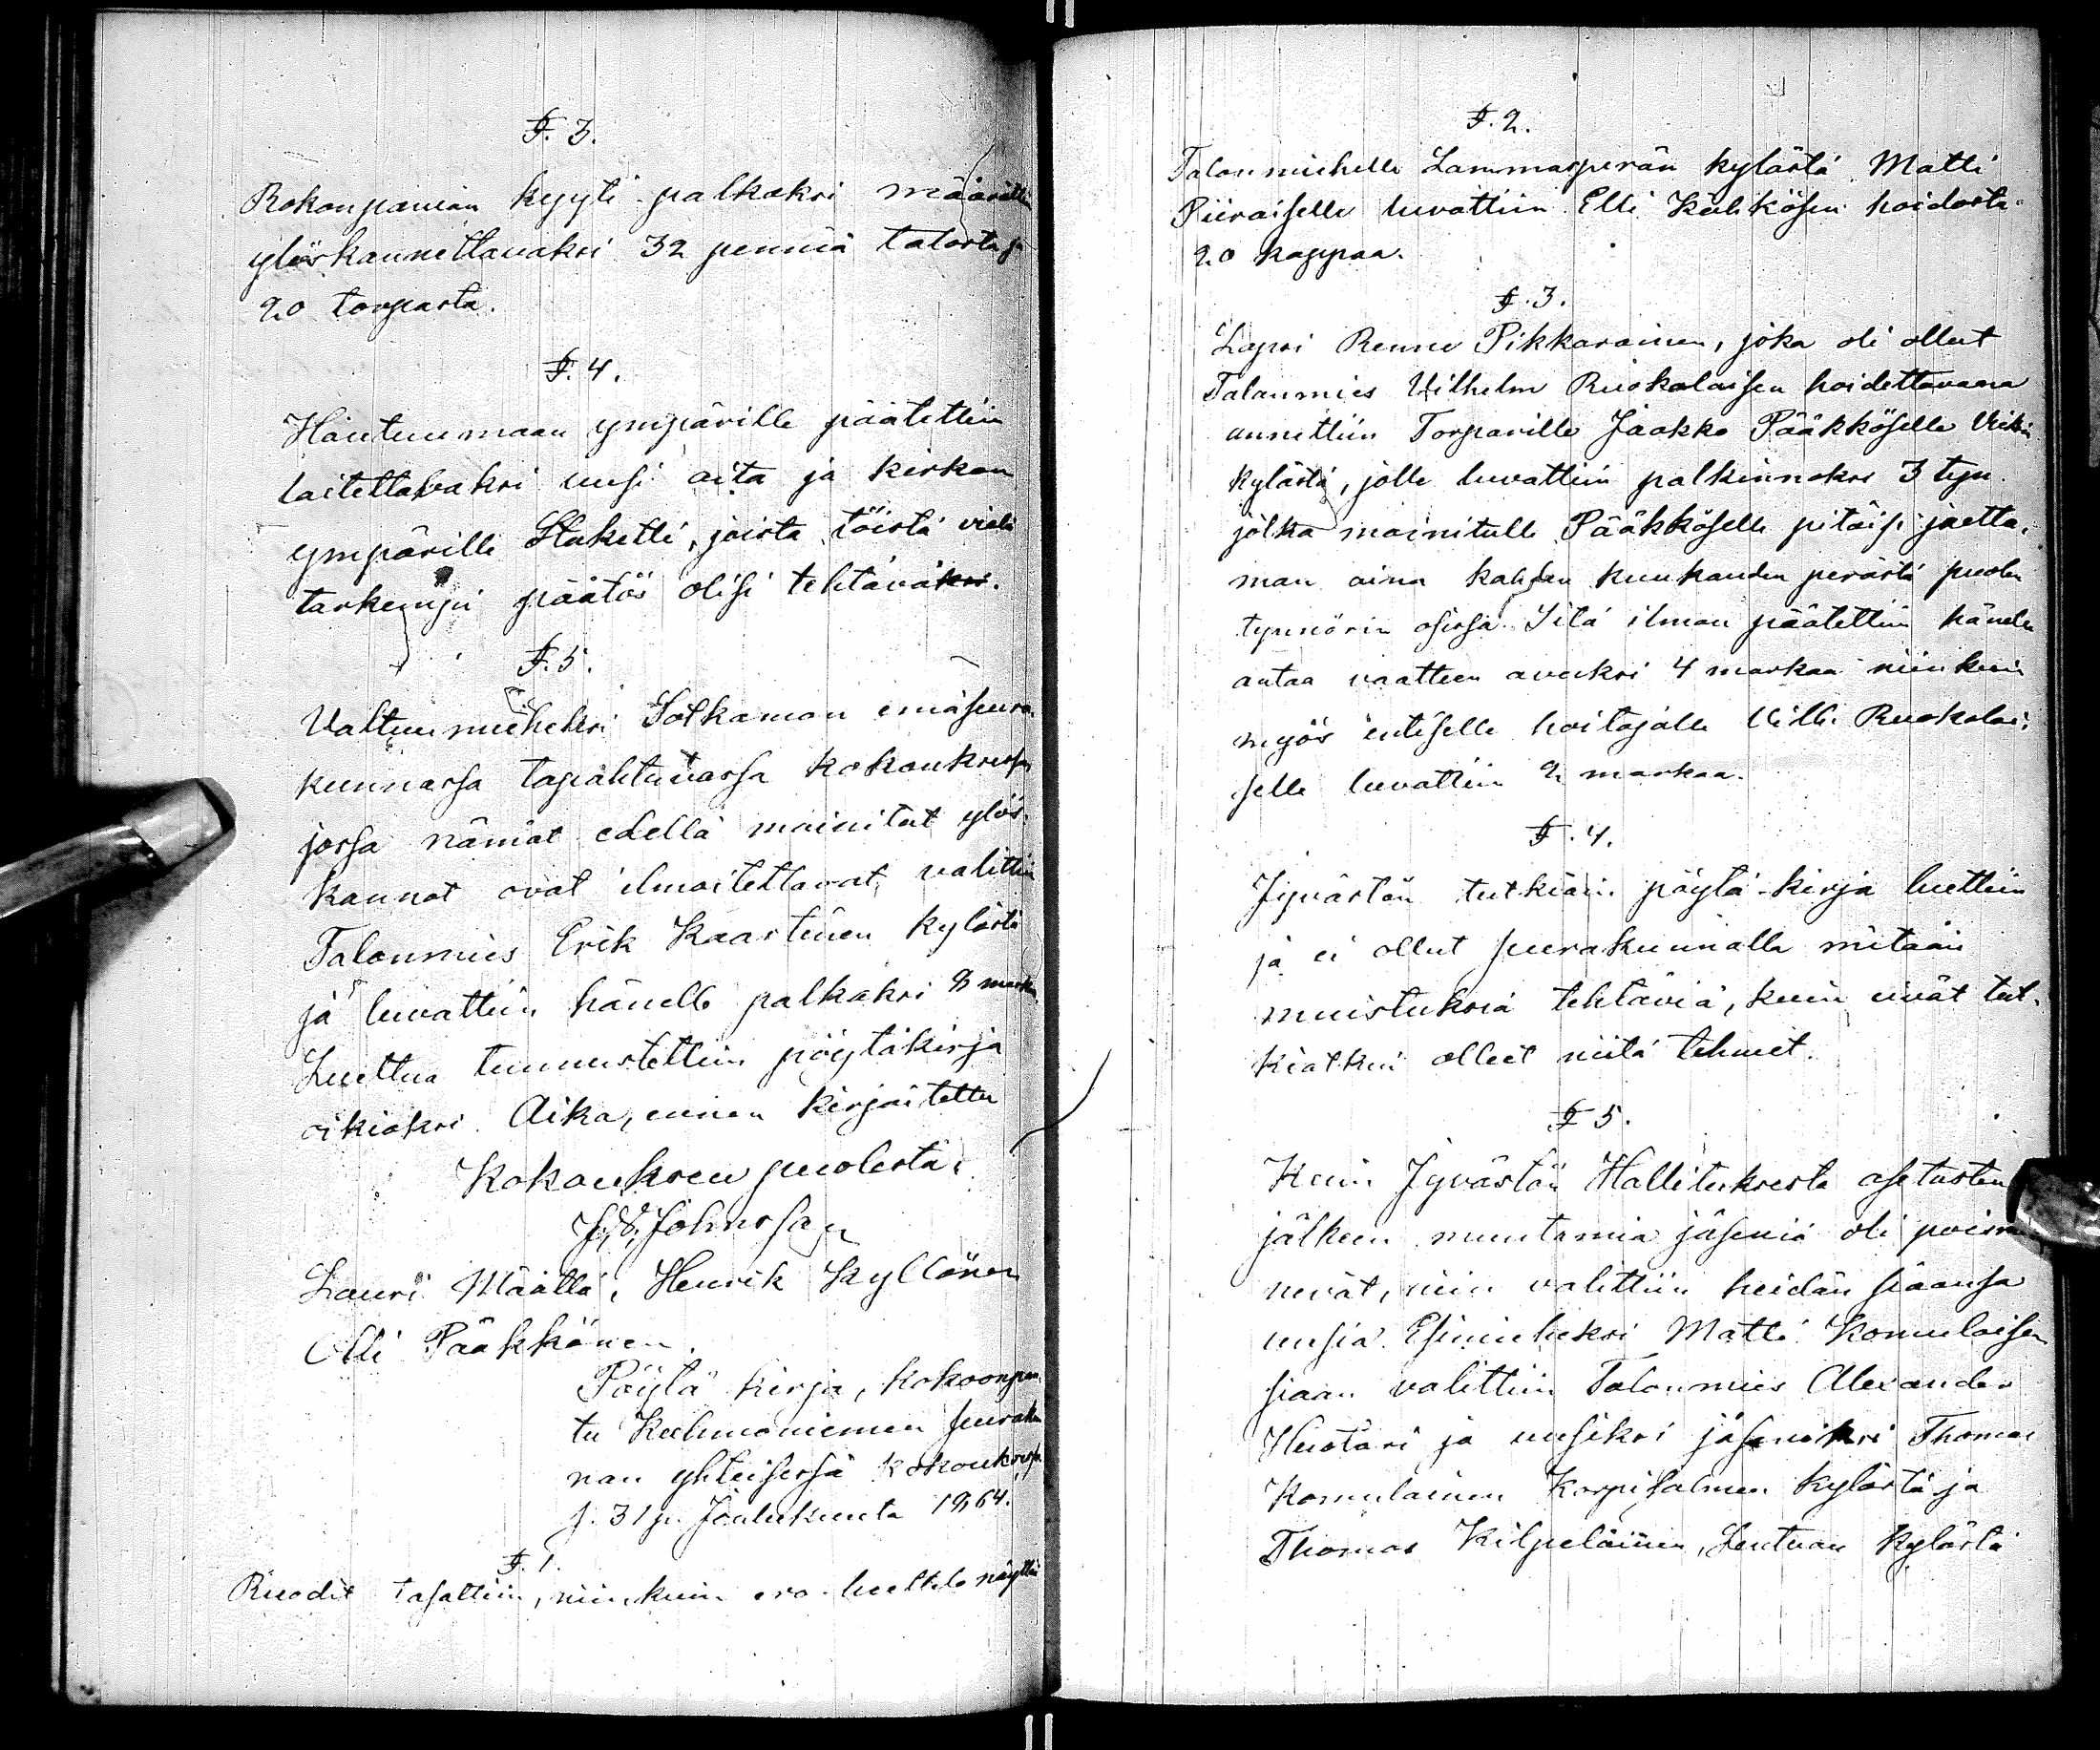 §. 3.
Rokonpanian kyyti-palkaksi määrättiin
ylöskannettavaksi 32 penniä talosta ja
20 torpasta.
§. 4.
Hautuumaan ympärille päätettiin
laitettavaksi uusi aita ja kirkon
ympärille Staketti, joista töistä vielä
tarkempi päätös olisi tehtävä.
§. 5.
Valtuusmieheksi Sotkamon emäseura-
kunnassa tapahtuvassa kokouksessa
jossa nämät edellä mainitut ylös-
kannot ovat ilmoitettavat, valittiin
Talonmies Erik Kaartinen kylästä
ja luvattiin hänelle palkaksi 8 markka
Luettua tunnustettiin pöytäkirja
oikiaksi. Aika, ennen kirjoitettu
Kokouksen puolesta:
Johnsson
Lauri Määttä, Henrik Kyllönen
Olli Pääkkönen.
Pöytä kirja, kokoonpan-
tu Kuhmoniemen seurakun
nan yhteisessä kokouksessa
p. 31 p. Joulukuuta 1864.
§. 1.
Ruodit tasattiin, niinkuin ero-luettelo näyttää
§. 2.
Talonmiehelle Lammasperän kylästä Matti
Piiraiselle luvattiin Elli Kähkösen hoidosta
20 kappaa.
§. 3.
Lapsi Renne Pikkarainen, joka oli ollut
Talonmies Vilhelm Ruokolaisen hoidettavana
annettiin Torparille Jaakko Pääkköselle
kylästä, jolle luvattiin palkinnoksi 3 tyn.
jotka mainitulle Pääkköselle pitäisi jaetta-
man aina kahden kuukauden perästä puolen
tynnörin osissa. Sitä ilman päätettiin hänelle
antaa vaatteen avuksi 4 markkaa niinkuin
myös entiselle hoitajalle Vilh. Ruokolai-
selle luvattiin 2 markkaa.
§. 4.
Jyvästön tutkiain pöytä-kirja luettiin
ja ei ollut seurakunnalla mitään
muistuksia tehtäviä, kuin eivät tut-
kiatkin olleet niitä tehneet.
§ 5.
Kuin Jyvästön Hallituksesta asetusten
jälkeen muutamia jäseniä oli poisme
nevät, niin valittiin heidän siaansa
uusia. Esimieheksi Matti Komulaisen
siaan valittiin Talonmies Alexander
Huotari ja uusiksi jäseniksi Thomas
Komulainen Korpisalmen kylästä ja
Thomas Kilpeläinen, Lentuan kylästä